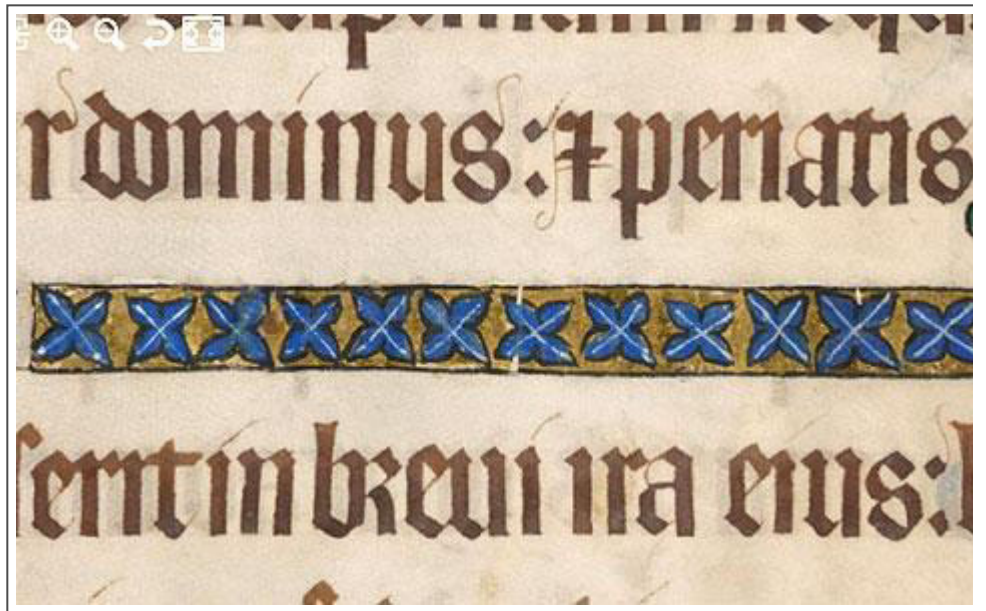 r dominus: ⁊ periatis
ſerit in breui ira eius: